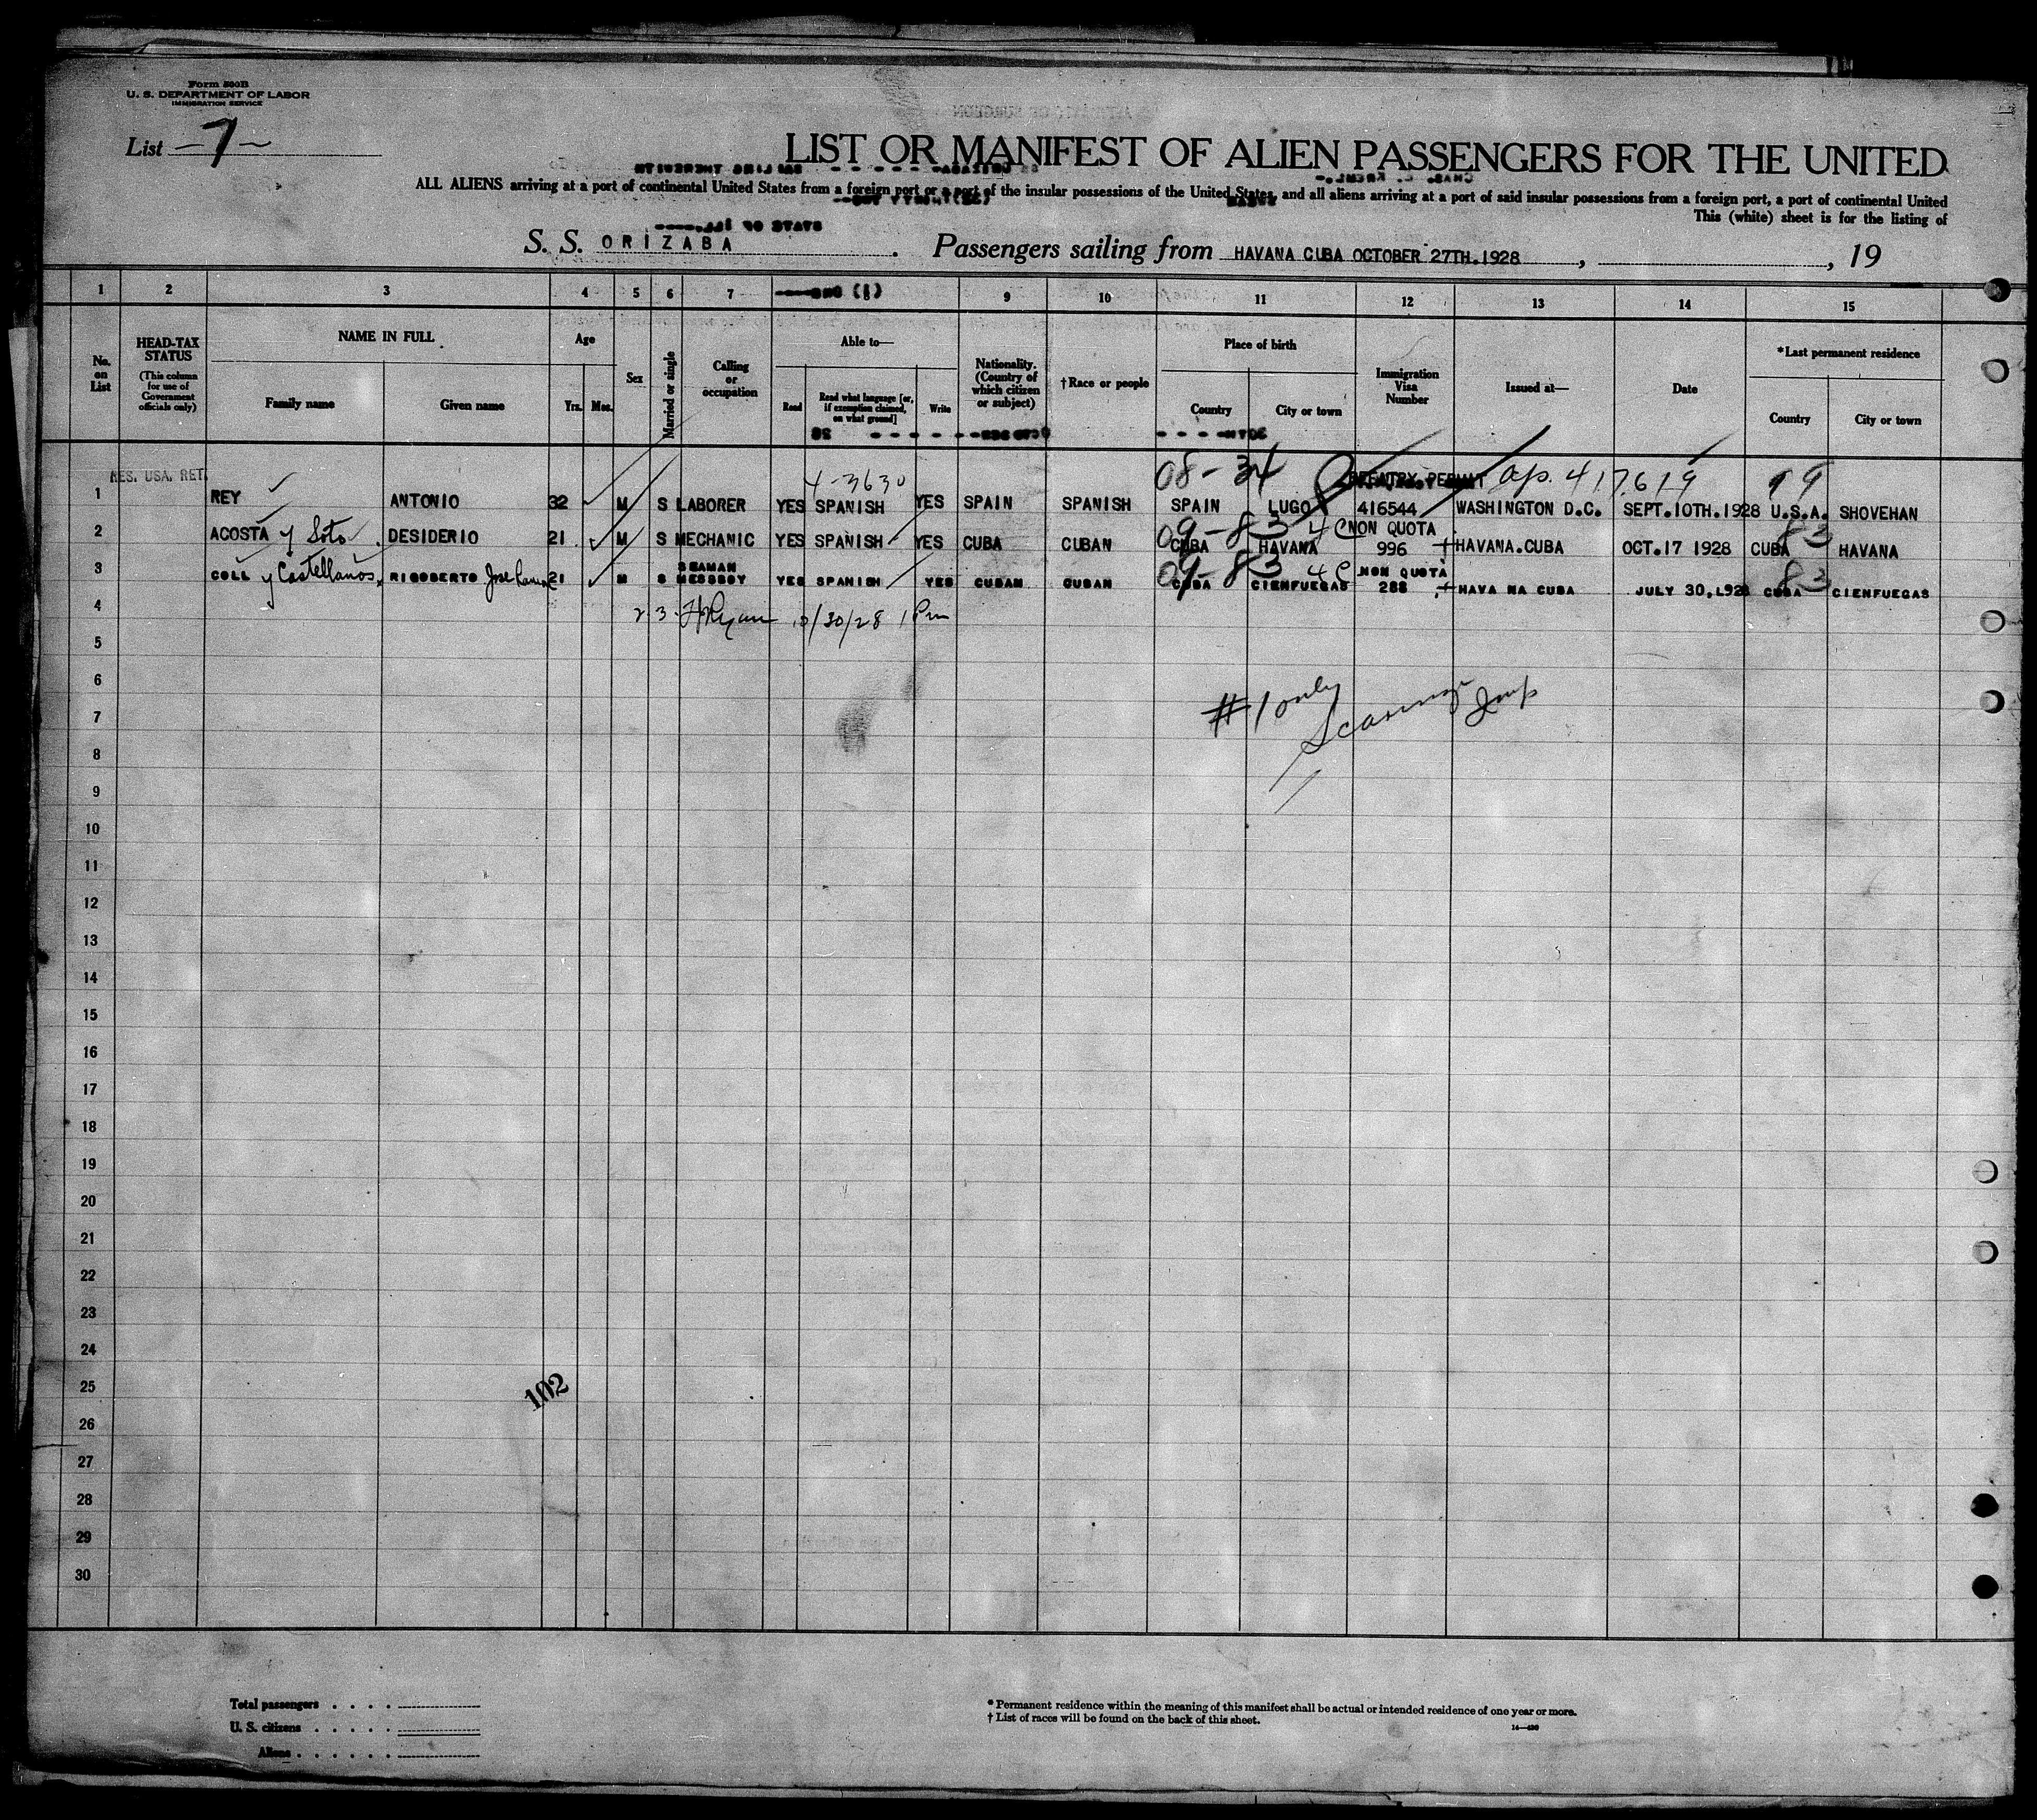 Form 500B
U. S. DEPARTMENT OF LABOR
IMMIGRATION SERVICE
List -7-
LIST OR MANIFEST OF ALIEN PASSENGERS FOR THE UNITED
ALL ALIENS arriving at a port of continental United States from a foreign port or a port of the insular possessions of the United States, and all aliens arriving at a port of said insular possessions from a foreign port, a port of continental United
This (white) sheet is for the listing of
S. S. ORIZABA. Passengers sailing from HAVANA CUBA OCTOBER 27TH.1928, , 19
1 2 3 4 5 6 7 (1) 9 10 11 12 13 14 15
No. on List
HEAD-TAX STATUS (This column for use of Government officials only)
NAME IN FULL
Family name Given name
Age
Yrs. Mos.
Sex
Married or single
Calling or occupation
Able to—
Read Read what language [or, if exemption claimed, on what ground] Write
Nationality. (Country of which citizen or subject)
†Race or people
Place of birth
Country City or town
Immigration Visa Number
Issued at—
Date
*Last permanent residence
Country City or town
RES. USA. RET. 4-3630 08-34 REENTRY PERMIT ap. 417619 99
1 REY ANTONIO 32 M S LABORER YES SPANISH YES SPAIN SPANISH SPAIN LUGO 416544 WASHINGTON D.C. SEPT.10TH.1928 U.S.A. SHOVEHAN
09-83 4C NON QUOTA 83
2 ACOSTA y Soto DESIDERIO 21 M S MECHANIC YES SPANISH YES CUBA CUBAN CUBA HAVANA 996 HAVANA.CUBA OCT.17 1928 CUBA HAVANA
SEAMAN 09-83 4C NON QUOTA 83
3 COLL y Castellanos RIGOBERTO Jose 21 M S MESSBOY YES SPANISH YES CUBAN CUBAN CUBA CIENFUEGAS 288 HAVA NA CUBA JULY 30,L928 CUBA CIENFUEGAS
4 2.3. HRyan 10/30/28 1Pm
5
6
7 #1 only
8
9
10
11
12
13
14
15
16
17
18
19
20
21
22
23
24
25 102
26
27
28
29
30
Total passengers . . . .
U. S. citizens . . . . .
Aliens . . . . . .
* Permanent residence within the meaning of this manifest shall be actual or intended residence of one year or more.
† List of races will be found on the back of this sheet.
14—430